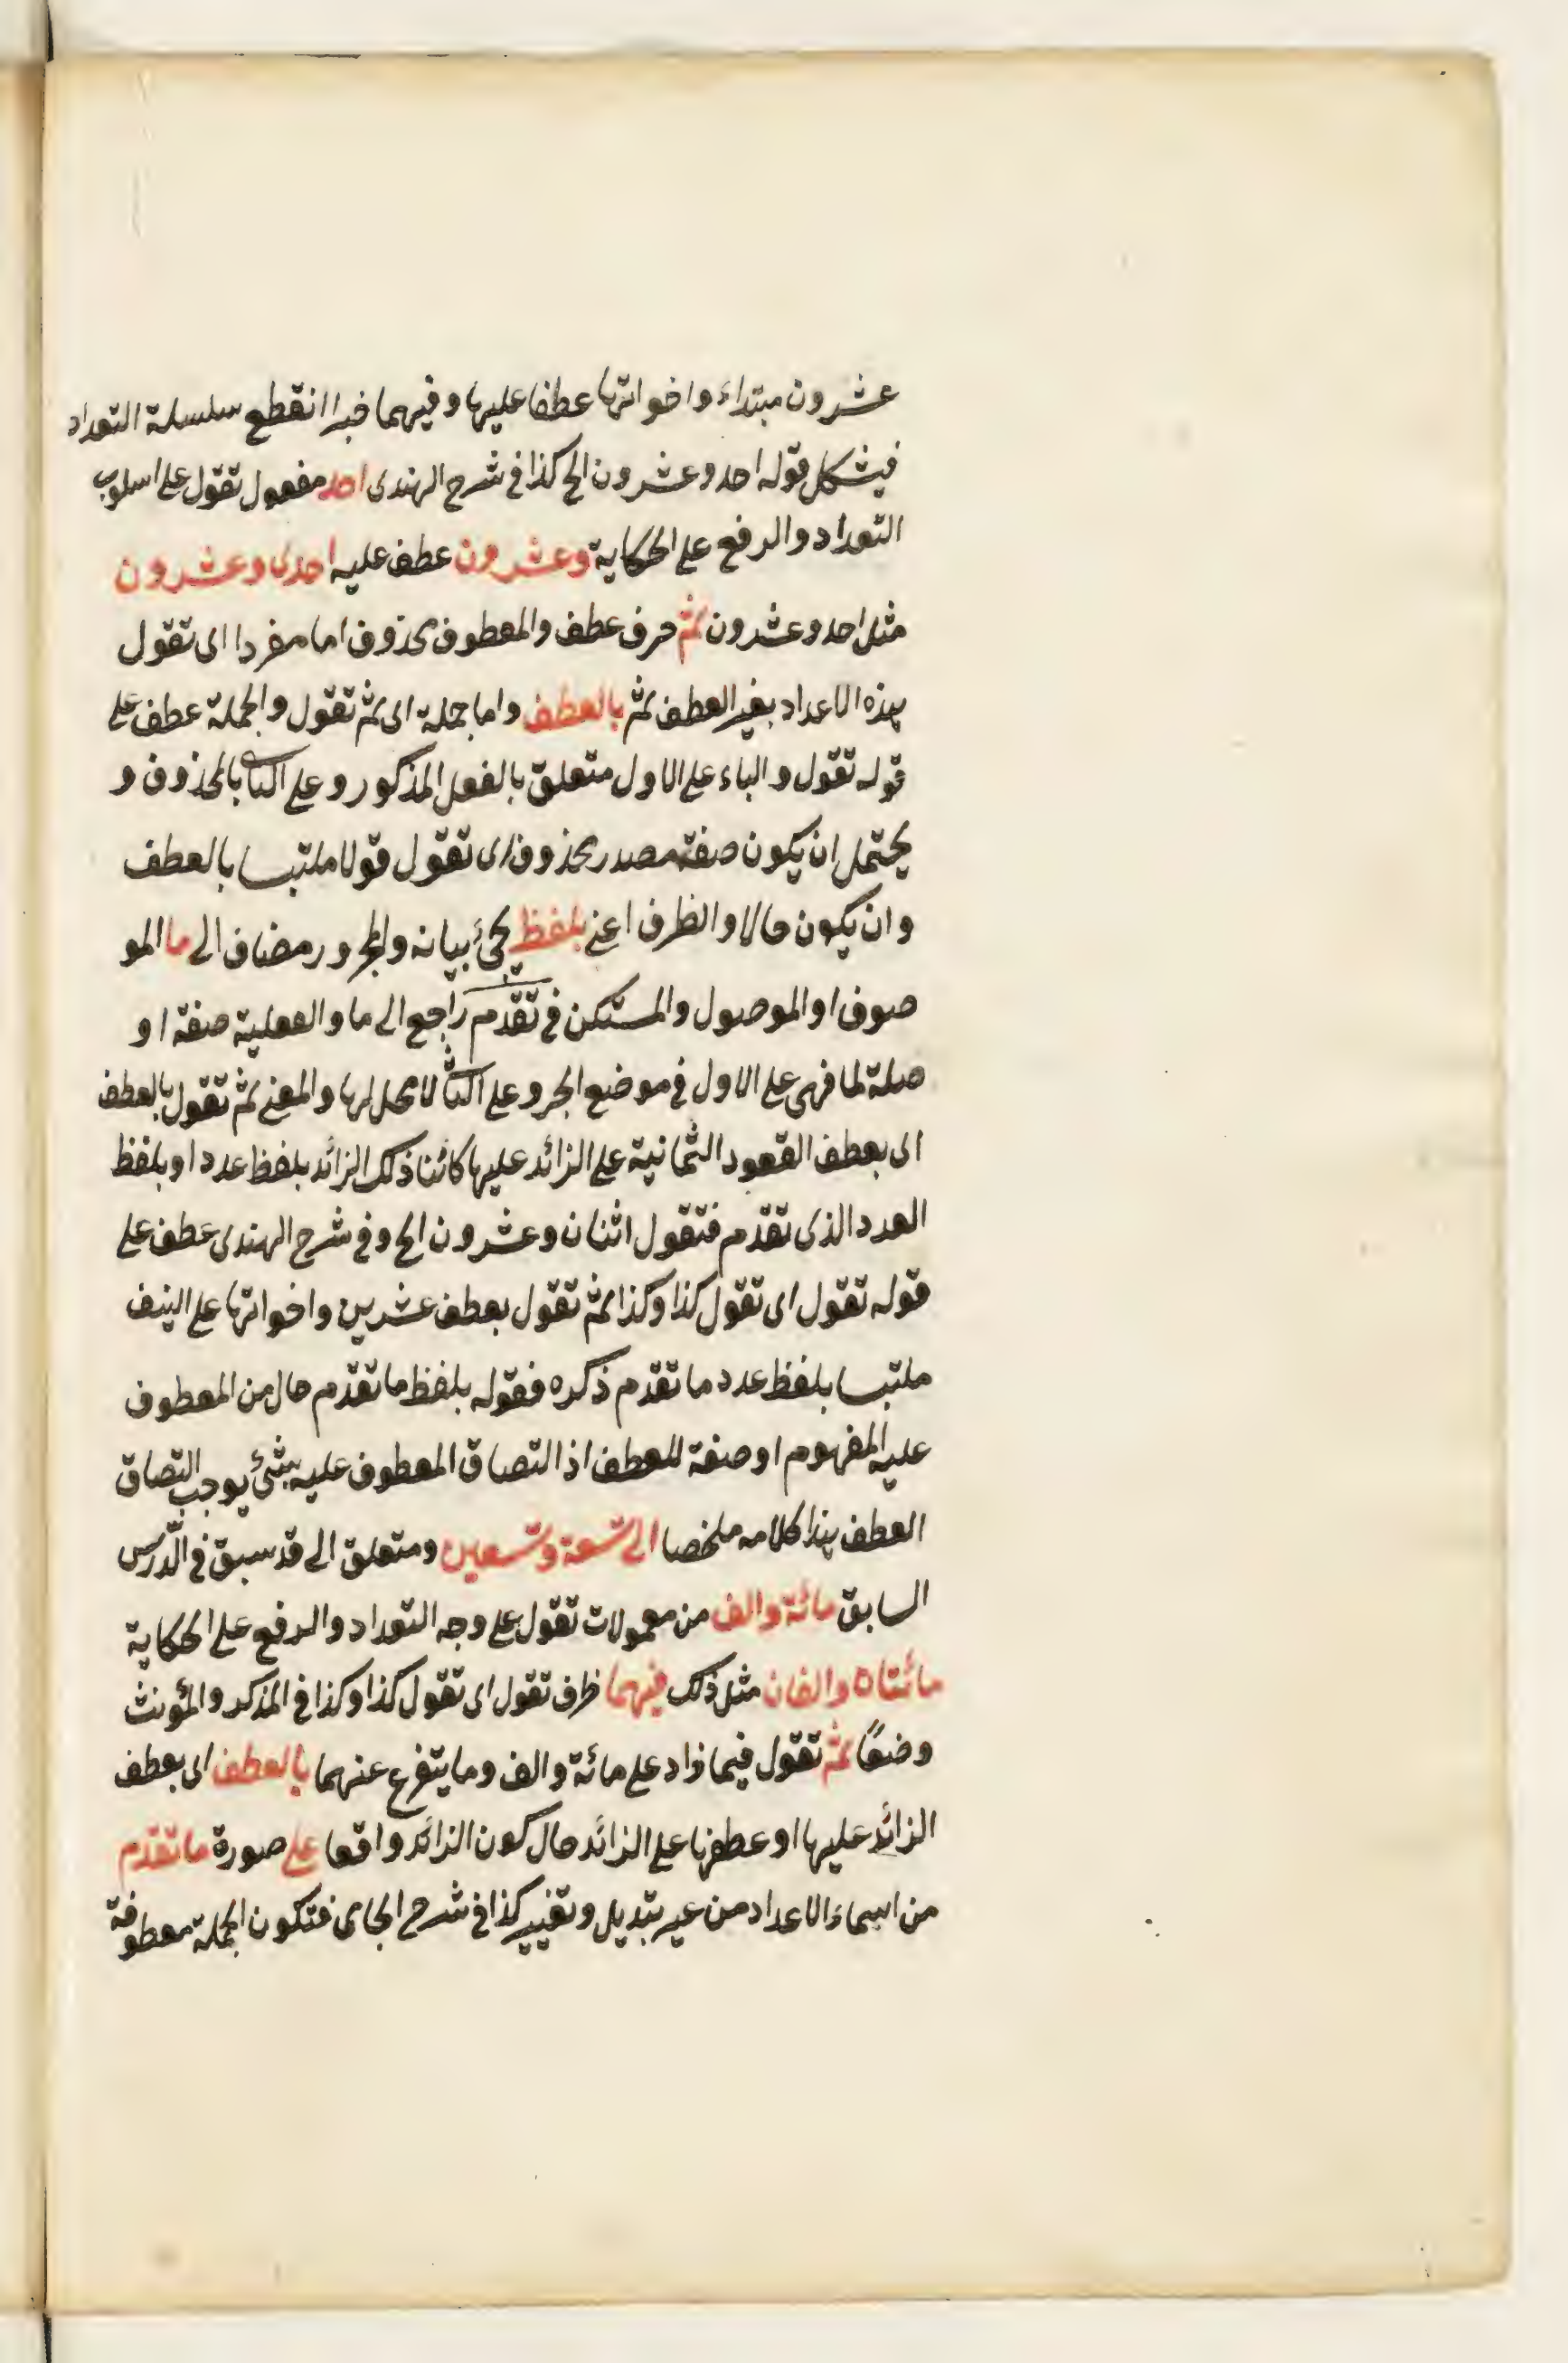 عشرون مبتداء واخواتها عطفا عليها وفيهما خبرا انقطع سلسلة التعداد
فيشكل قوله احد وعشرون الخ كذا فى شرح الهندى احد مفعول تقول على اسلوب
التعداد والرفع على الحكاية وعشرون عطف عليه احدى وعشرون
مثل احد وعشرون ثم حرف عطف والمعطوف محذوف اما مفردا اى تقول
بهذه الاعداد بغير العطف ثم بالعطف واما جملة اى ثم تقول والجملة عطف على
قوله تقول والباء على الاول متعلق بالفعل المذكور وعلى الثا بالمحذوف و
يحتمل ان يكون صفة مصدر محذوف اى تقول قولا ملتبسا بالعطف
وان يكون حالا والظرف اعنى بلفظ يجئ بيانه والمجرور مضاف الى ما المو
صوف او الموصول والمستكن فى تقدم راجع الى ما والفعلية صفة او
صلة لما فهى على الاول فى موضع الجر وعلى الثا لا محل لها والمعنى ثم تقول بالعطف
اى بعطف العقود الثمانية على الزائد عليها كائنا ذلك الزائد بلفظ عدد او بلفظ
العدد الذى تقدم فتقول اثنان وعشرون الخ وفى شرح الهندى عطف على
قوله تقول اى تقول كذا وكذا ثم تقول بعطف عشرين واخواتها على النيف
ملتبسا بلفظ عدد ما تقدم ذكره فقوله بلفظ ما تقدم حال من المعطوف
عليه المفهوم او صفة للعطف اذ التصاق المعطوف عليه بشئ يوجب التصاق
العطف هذا كلامه ملخصا الى تسعة وتسعين ومتعلق الى قد سبق فى الدرس
السابق مائة والف من معمولات تقول على وجه التعداد والرفع على الحكاية
مائتان والفان مثل ذلك فيهما ظرف تقول اى تقول كذا وكذا فى المذكر والمؤنث
وضعًا ثم تقول فيما زاد على مائة والف وما يتفرع عنهما بالعطف اى بعطف
الزائد عليها او عطفها على الزائد حال كون الزائد واقعا على صورة ما تقدم
من اسماء الاعداد من عير تبديل وتغيير كذا فى شرح الجامى فتكون الجملة معطوفة